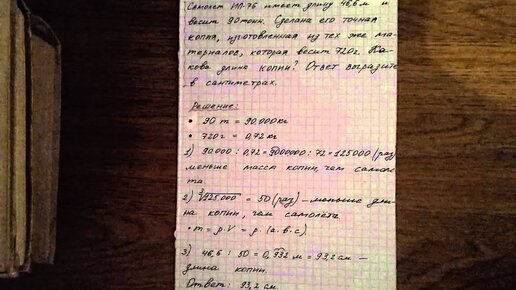 Самолет ИЛ-76 имеет длину 46,6 м и
весит 90 тонн. Сделана его точная
копия, изготовленная из тех же ма-
териалов, которая весит 720 г. Ка-
кова длина копии? Ответ выразите
в сантиметрах.
Решение:
• 90 т = 90.000 кг
• 720 г = 0,72 кг
1) 90.000 : 0,72 = 9000000 : 72 = 125000 (раз)
меньше масса копии, чем самоле-
та.
2) ∛125.000 = 50 (раз) – меньше дли-
на копии, чем самолета
• m = ρ·V = ρ·(a·b·c).
3) 46,6 : 50 = 0,932 м = 93,2 см –
длина копии.
Ответ: 93,2 см.